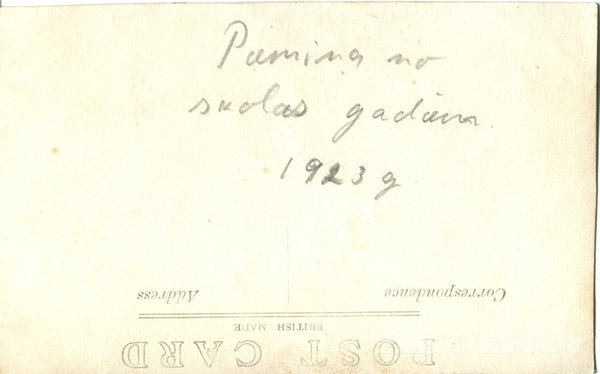 Pæmiņa no
skolas gadiem
1923 g
Correspondence
Address
BRITISH MADE
POST CARD